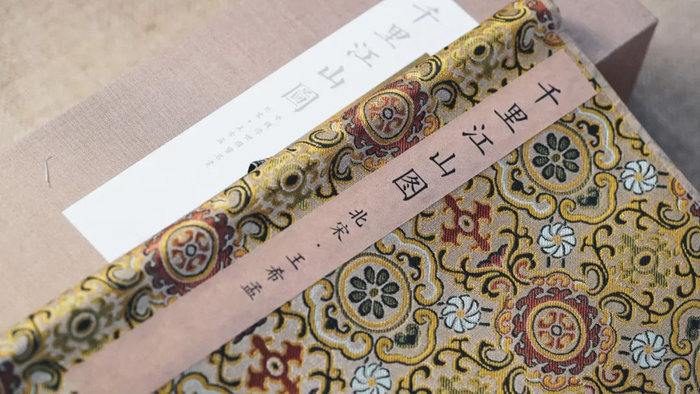 千里江山圖
千里江山图
北宋·王希孟